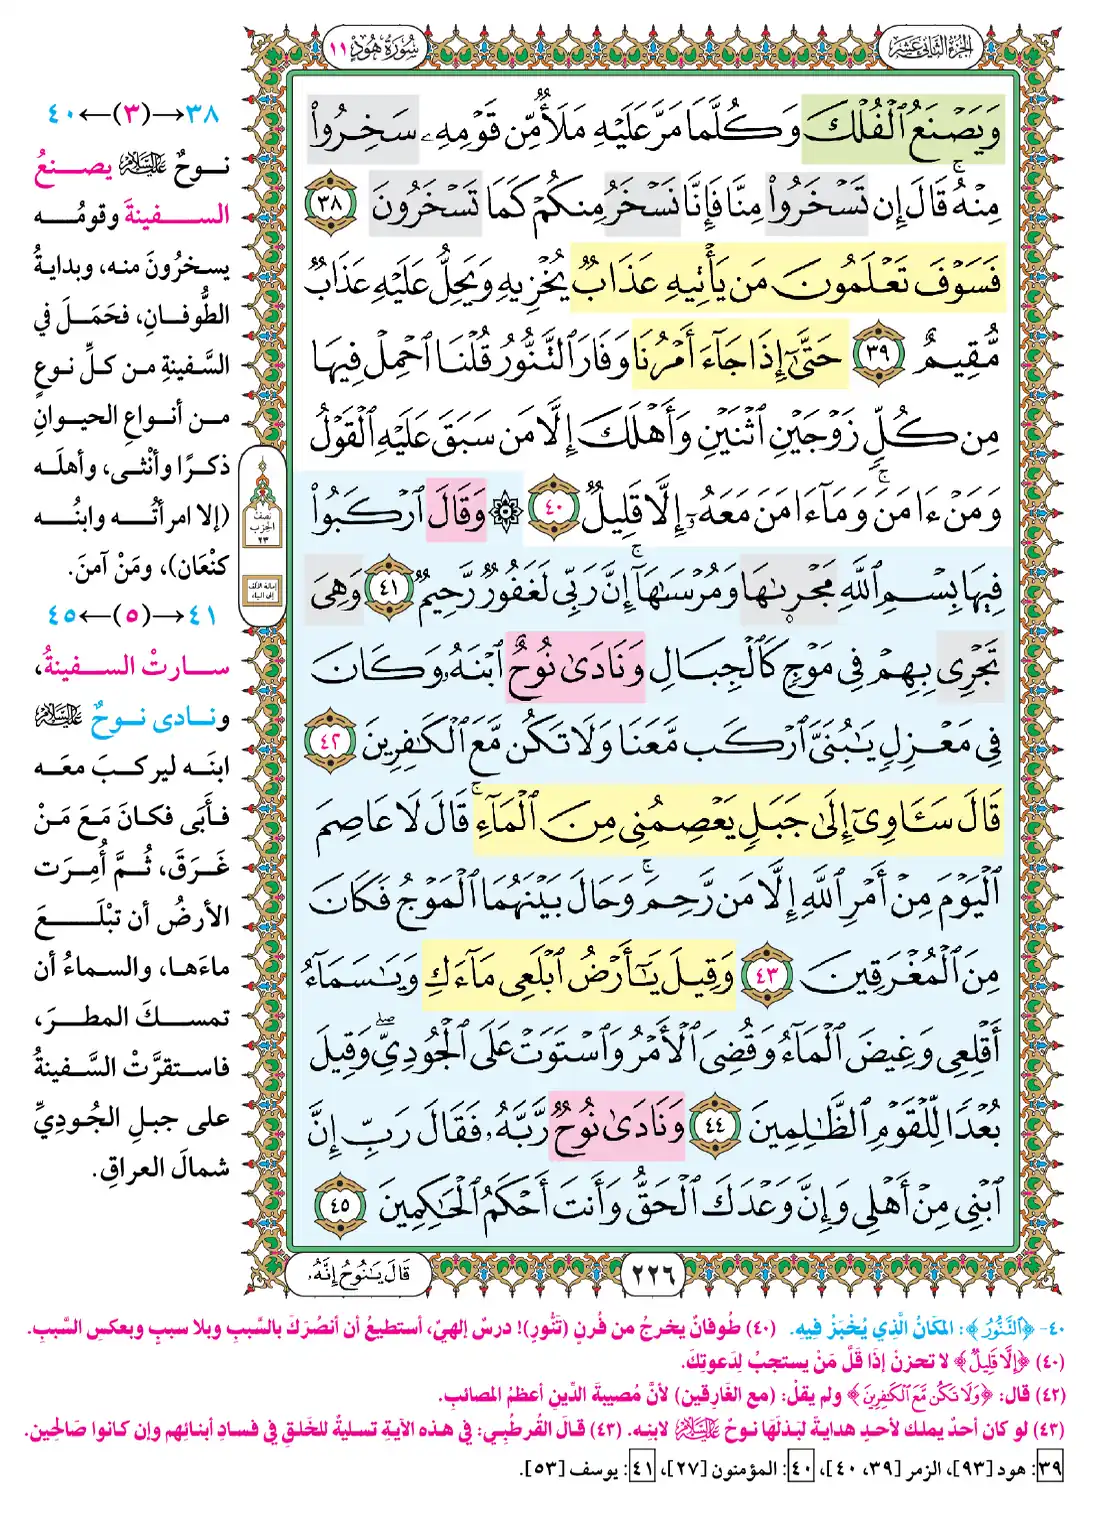 الجزء الثاني عشر
سُورَةُ هُودٍ ١١
وَيَصۡنَعُ ٱلۡفُلۡكَ وَكُلَّمَا مَرَّ عَلَيۡهِ مَلَأٞ مِّن قَوۡمِهِۦ سَخِرُواْ
مِنۡهُۚ قَالَ إِن تَسۡخَرُواْ مِنَّا فَإِنَّا نَسۡخَرُ مِنكُمۡ كَمَا تَسۡخَرُونَ ٣٨
فَسَوۡفَ تَعۡلَمُونَ مَن يَأۡتِيهِ عَذَابٞ يُخۡزِيهِ وَيَحِلُّ عَلَيۡهِ عَذَابٞ
مُّقِيمٌ ٣٩ حَتَّىٰٓ إِذَا جَآءَ أَمۡرُنَا وَفَارَ ٱلتَّنُّورُ قُلۡنَا ٱحۡمِلۡ فِيهَا
مِن كُلّٖ زَوۡجَيۡنِ ٱثۡنَيۡنِ وَأَهۡلَكَ إِلَّا مَن سَبَقَ عَلَيۡهِ ٱلۡقَوۡلُ
وَمَنۡ ءَامَنَۚ وَمَآ ءَامَنَ مَعَهُۥٓ إِلَّا قَلِيلٞ ٤٠ ۞ وَقَالَ ٱرۡكَبُواْ
فِيهَا بِسۡمِ ٱللَّهِ مَجۡرٜىٰهَا وَمُرۡسَىٰهَآۚ إِنَّ رَبِّي لَغَفُورٞ رَّحِيمٞ ٤١ وَهِيَ
تَجۡرِي بِهِمۡ فِي مَوۡجٖ كَٱلۡجِبَالِ وَنَادَىٰ نُوحٌ ٱبۡنَهُۥ وَكَانَ
فِي مَعۡزِلٖ يَٰبُنَيَّ ٱرۡكَب مَّعَنَا وَلَا تَكُن مَّعَ ٱلۡكَٰفِرِينَ ٤٢
قَالَ سَـَٔاوِيٓ إِلَىٰ جَبَلٖ يَعۡصِمُنِي مِنَ ٱلۡمَآءِۚ قَالَ لَا عَاصِمَ
ٱلۡيَوۡمَ مِنۡ أَمۡرِ ٱللَّهِ إِلَّا مَن رَّحِمَۚ وَحَالَ بَيۡنَهُمَا ٱلۡمَوۡجُ فَكَانَ
مِنَ ٱلۡمُغۡرَقِينَ ٤٣ وَقِيلَ يَٰٓأَرۡضُ ٱبۡلَعِي مَآءَكِ وَيَٰسَمَآءُ
أَقۡلِعِي وَغِيضَ ٱلۡمَآءُ وَقُضِيَ ٱلۡأَمۡرُ وَٱسۡتَوَتۡ عَلَى ٱلۡجُودِيِّۖ وَقِيلَ
بُعۡدٗا لِّلۡقَوۡمِ ٱلظَّٰلِمِينَ ٤٤ وَنَادَىٰ نُوحٞ رَّبَّهُۥ فَقَالَ رَبِّ إِنَّ
ٱبۡنِي مِنۡ أَهۡلِي وَإِنَّ وَعۡدَكَ ٱلۡحَقُّ وَأَنتَ أَحۡكَمُ ٱلۡحَٰكِمِينَ ٤٥
٢٢٦
قَالَ يَٰنُوحُ إِنَّهُۥ
نصف
الحزب
٢٣
إمالة الألف
إلى الياء
٣٨←(٣)→٤٠
نوحٌ عليه السلام يصنعُ
السفينةَ وقومُه
يسخرُونَ منه، وبدايةُ
الطُّوفانِ، فحَمَلَ في
السَّفينةِ من كلِّ نوعٍ
من أنواعِ الحيوانِ
ذكرًا وأنْثى، وأهلَه
(إلا امرأتُه وابنُه
كنْعَان)، ومَنْ آمنَ.
٤١←(٥)→٤٥
سارتْ السفينةُ،
ونادى نوحٌ عليه السلام
ابنَه ليركبَ معَه
فأَبَى فكانَ مَعَ مَنْ
غَرَقَ، ثُمَّ أُمِرَت
الأرضُ أن تبْلَعَ
ماءَها، والسماءُ أن
تمسكَ المطرَ،
فاستقرَّتْ السَّفينةُ
على جبلِ الجُودِيِّ
شمالَ العراقِ.
٤٠- ﴿ٱلتَّنُّورُ﴾: المكَانُ الَّذِي يُخْبَزُ فِيهِ. (٤٠) طُوفانٌ يخرجُ من فُرنٍ (تَنُّورِ)! درسٌ إلهيٌ، أستطيعُ أن أنصُرَكَ بالسَّببِ وبلا سببٍ وبعكسِ السَّببِ.
(٤٠) ﴿إِلَّا قَلِيلٌ﴾ لا تحزنْ إذَا قَلَّ مَنْ يستجبْ لِدَعوتِكَ.
(٤٢) قال: ﴿وَلَا تَكُن مَّعَ ٱلۡكَٰفِرِينَ﴾ ولم يقلْ: (مع الغَارِقين) لأنَّ مُصيبةَ الدِّينِ أعظمُ المصائبِ.
(٤٣) لو كان أحدٌ يملك لأحدٍ هدايةً لبَذلَهَا نوحٌ عليه السلام لابنِه. (٤٣) قالَ القُرطُبِي: في هذه الآيةِ تسليةٌ للخَلقِ في فسادِ أبنائِهم وإن كانوا صَالحِين.
٣٩: هود [٩٣]، الزمر [٣٩، ٤٠]، ٤٠: المؤمنون [٢٧]، ٤١: يوسف [٥٣].